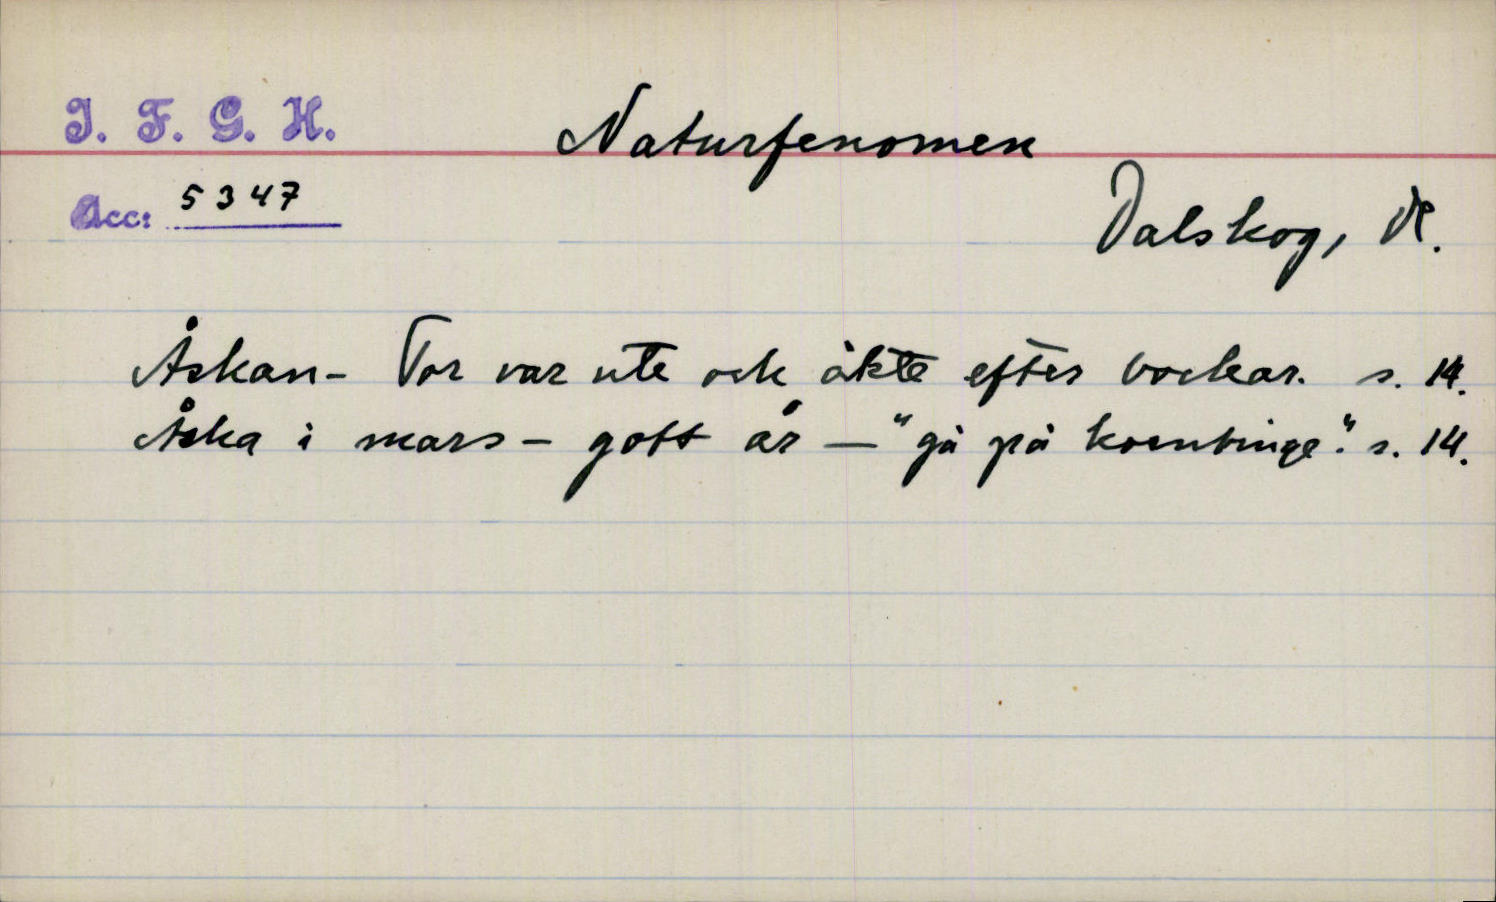 I. F. G. H.
Naturfenomen
Acc: 5347
Dalskog, Dl.
Åskan - Tor var ute och åkte efter bockar. s. 14.
Åska i mars - gott år - "gå på kornbinge". s. 14.